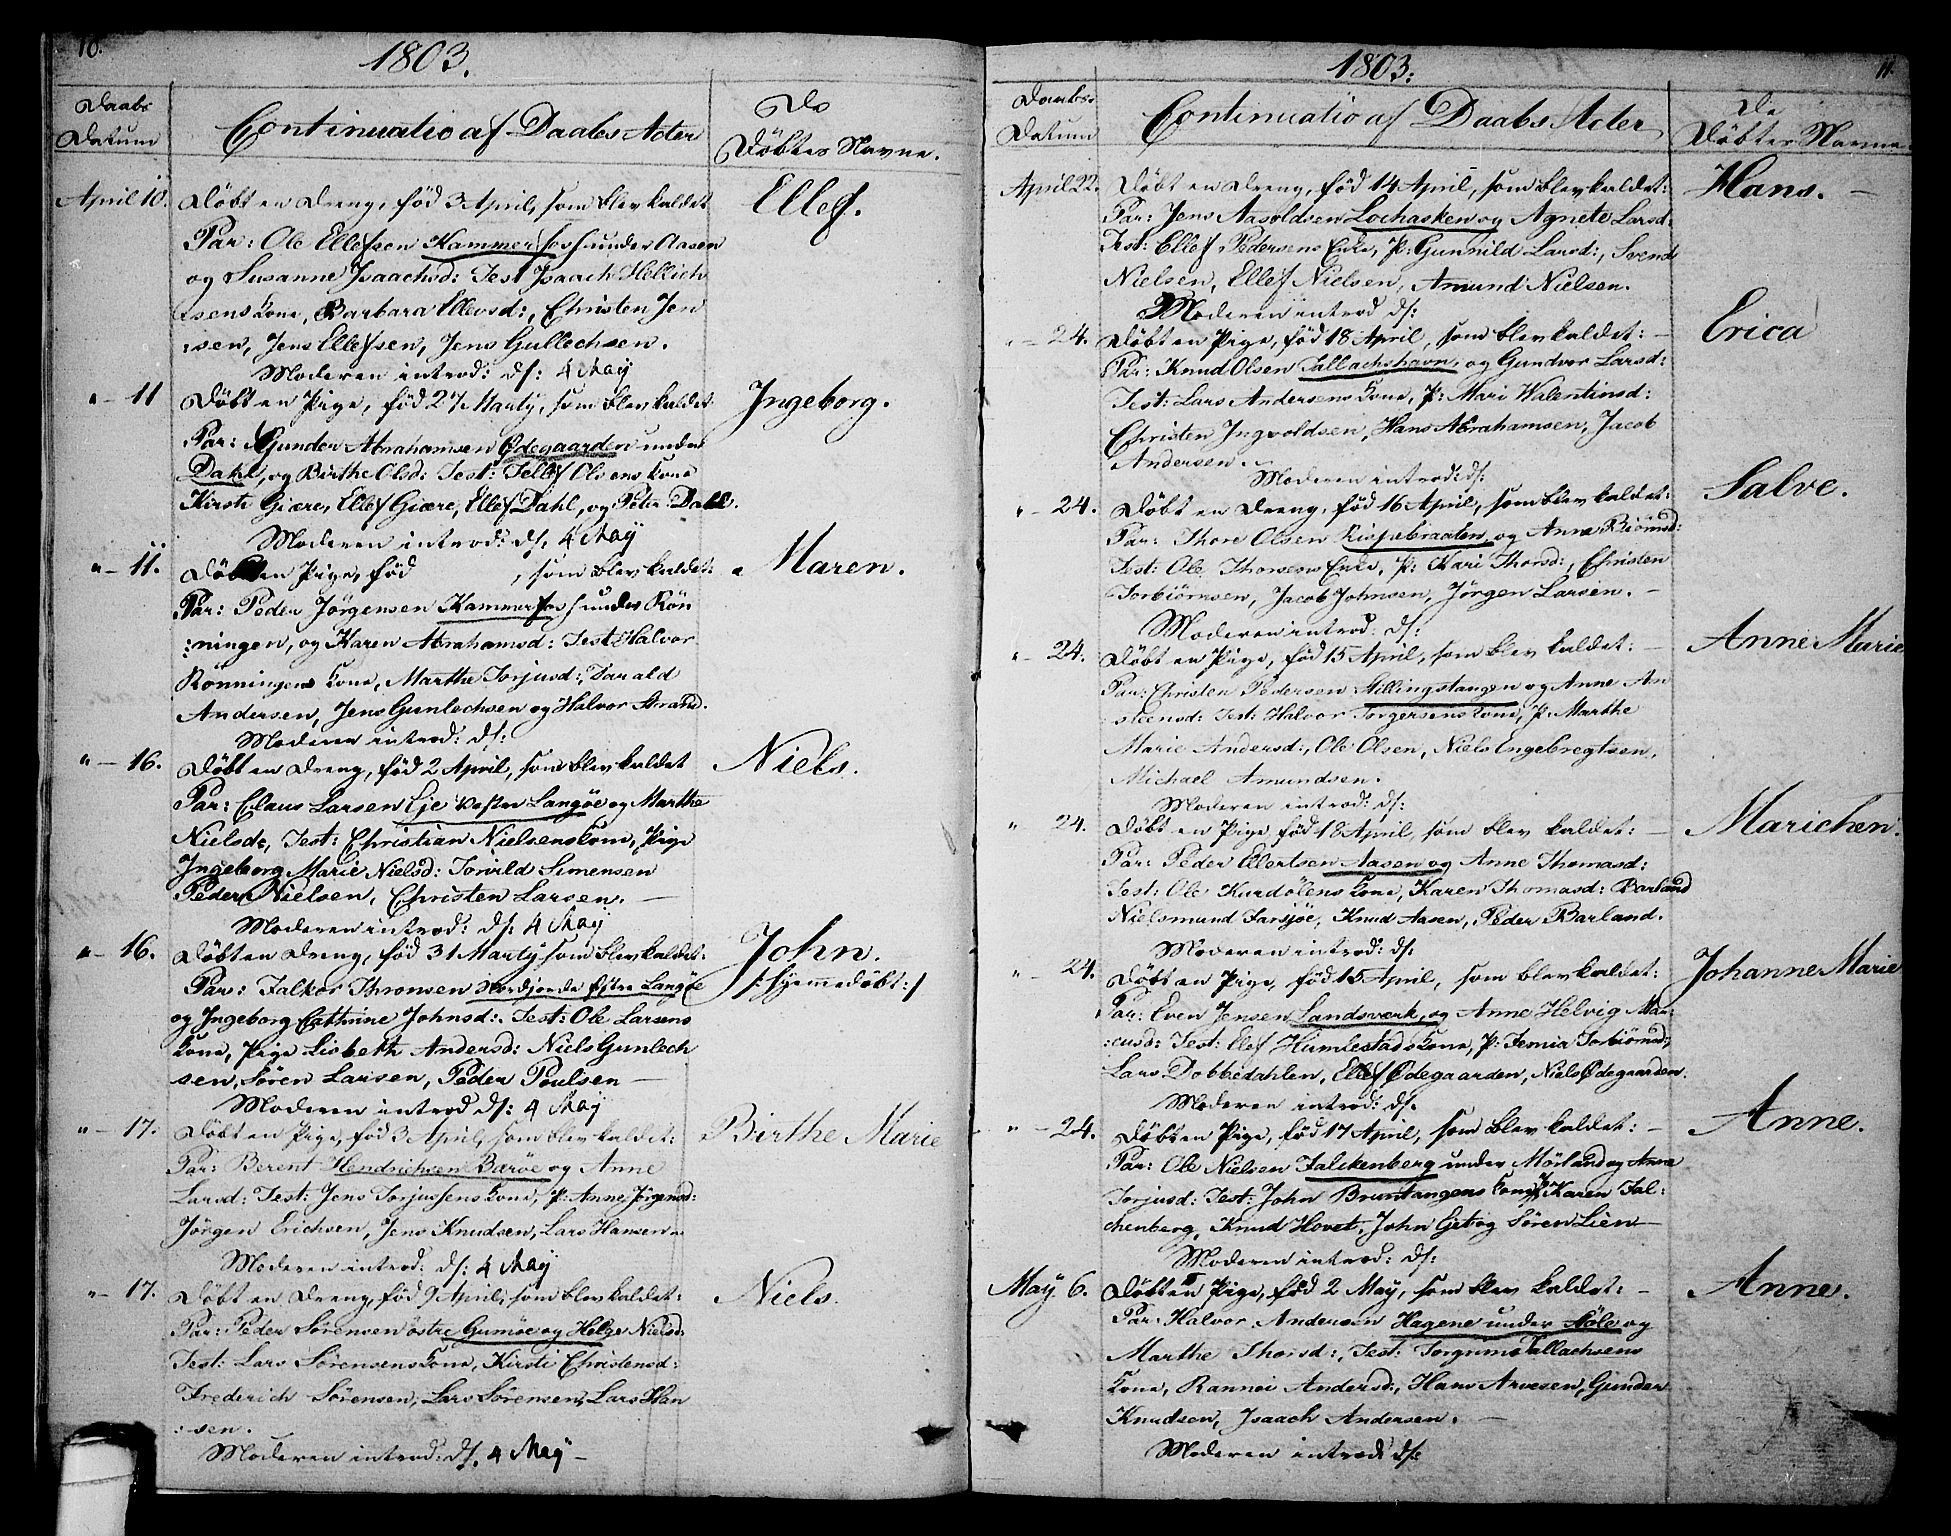 10.
1803.
Daabs
Datum
Continuatio af Daabs Acter
De
Döbtes Navne.
April 10.
Döbt en Dreng, föd 3 April, som blev kaldet
Ellef.
Par: Ole Ellefsen Kammerfos under Aasen
og Susanne Isaachsd: Test Isaach Hellich
sens Kone, Barbara Ellevsd:, Christen Jen
:sen, Jens Ellefsen, Jens Gullechsen.
Moderen introd: d/: 4 May
" – 11
Döbt en Pige, föd 27 Martÿ, som blev kaldet
Ingeborg.
Par: Gunder Abrahamsen Ødegaarden under
Dahl, og Birthe Olsd: Test: Tellef Olsens Kone
Kirsti Giære, Ellef Giære, Ellef Dahl, og Peter Dahl.
Moderen introd: d/: 4 May
" – 11.
Döbt en Pige, föd , som blev kaldet:
Maren.
Par: Peder Jörgensen Kammerfos under Rön
:ningen, og Karen Abrahamsd: Test Halvor
Rönningens Kone, Marthe Torjusd:, Tarald
Andersen, Jens Gunlechsen og Halvor Strand.
Moderen introd: d/:
" – 16.
Döbt en Dreng, föd 2 April, som blev kaldet
Niels.
Par: Claus Larsen Eje Langöe og Marthe
Nielsd:, Test: Christian Nielsens Kone, Pige
Ingeborg Marie Nielsd: Torild Simensen
Peder Nielsen, Christen Larsen. –
Moderen introd: d/: 4 May
" – 16.
Döbt en Dreng, föd 31 Martÿ som blev kaldet:
John.
/: Hjemmedöbt :/
Par: Falkor Thronsen Langöe
og Ingeborg Cathrine Johnsd:. Test: Ole Larsens
Kone, Pige Lisbeth Andersd: Niels Gunlech
sen, Sören Larsen, Peder Poulsen –
Moderen introd d/: 4 May
" – 17.
Döbt en Pige, föd 3 April, som blev kaldet:
Birthe Marie
Par: Berent Hendrichsen Baröe og Anne
Larsd: Test: Jens Torjussens Kone, P: Anne Jörgensd:
Jörgen Erichsen, Jens Knudsen, Lars Hansen
Moderen introd: d/: 4 May
" – 17.
Döbt en Dreng, föd 9 April, som blev kaldet:
Niels.
Par: Peder Sörensen östre Gumöe og Helge Nielsd:
Test: Lars Sörensens Kone, Kirsti Christensd:
Frederich Sörensen, Lars Sörensen, Lars Han
:sen.
Moderen introd: d/. 4 May –
11.
1803:
Daabs
Datum
Continuatio af Daabs Acter
De
Döbtes Navne
April 22.
Döbt en Dreng, föd 14 April, som blev kaldet:
Hans. –
Par: Jens Aasoldsen Lochasken og Agnete Larsd:
Test: Ellef Pedersens Enke, P: Gunnild Larsd:, Svend
Nielsen, Ellef Nielsen, Amund Nielsen.
Moderen introd d/:
" – 24.
Döbt en Pige, föd 18 April, som blev kaldet: –
Erica
Par: Knud Olsen Tallachshavn, og Gundvor Larsd:
Test: Lars Andersens Kone, P: Mari Walentinsd:
Christen Ingvoldsen, Hans Abrahamsen, Jacob
Andersen. –
Moderen introd: d/:
" – 24.
Döbt en Dreng, föd 16 April, som blev kaldet:
Salve.
Par: Thore Olsen og Anne Biörnsd:
Test: Ole Thorsens Enke, P: Kari Thorsd:, Christen
Torbiörnsen, Jacob Johnsen, Jörgen Larsen. –
Moderen introd: d/:
" – 24.
Döbt en Pige, föd 15 April, som blev kaldet: –
Anne Marie
Par: Christen Pedersen Stillingstangen og Anne An
:steensd: Test: Halvor Torgersens Kone, P: Marthe
Marie Andersd:, Ole Olsen, Niels Engebregtsen,
Michael Amundsen.
Moderen introd: d/:
" 24.
Döbt en Pige, föd 18 April, som blev kaldet: –
Marichen.
Par: Peder Ellertsen Aasen og Anne Thomasd:
Test: Ole Kurdölens Kone, Karen Thomasd: Barland
Nielsmund Farsjöe, Knud Aasen, Peder Barland.
Moderen introd: d/:
" – 24.
Döbt en Pige, föd 15 April, som blev kaldet:
Johanne Marie
Par: Even Jensen Landsværk, og Anne Helvig Mar:
:cusd: Test: Elef Humlestads Kone, P: Femia Torbiörnsd:,
Lars Dobbedahlen, Ellef Ødegaarden, Niels Ødegaarden.
Moderen introd: d/:
" – 24.
Döbt en Pige, föd 17 April, som blev kaldet: –
Anne.
Par: Ole Nielsen Falckenberg under Mörland og Anne
Torjusd: Test: John Bruntangens Kone, P: Karen Fal:
chenberg, Knud Hovet, John Getog Sören Lien –
Moderen introd: d/:
May 6.
Döbt en Pige, föd 2 May, som blev kaldet: –
Anne.
Par: Halvor Andersen Hagene under Köle og
Marthe Thorsd:, Test: Torgrims Tallachsens
Kone, Rannei Andersd:, Hans Arvesen, Gunder
Knudsen, Isaach Andersen. –
Moderen introd: d/: